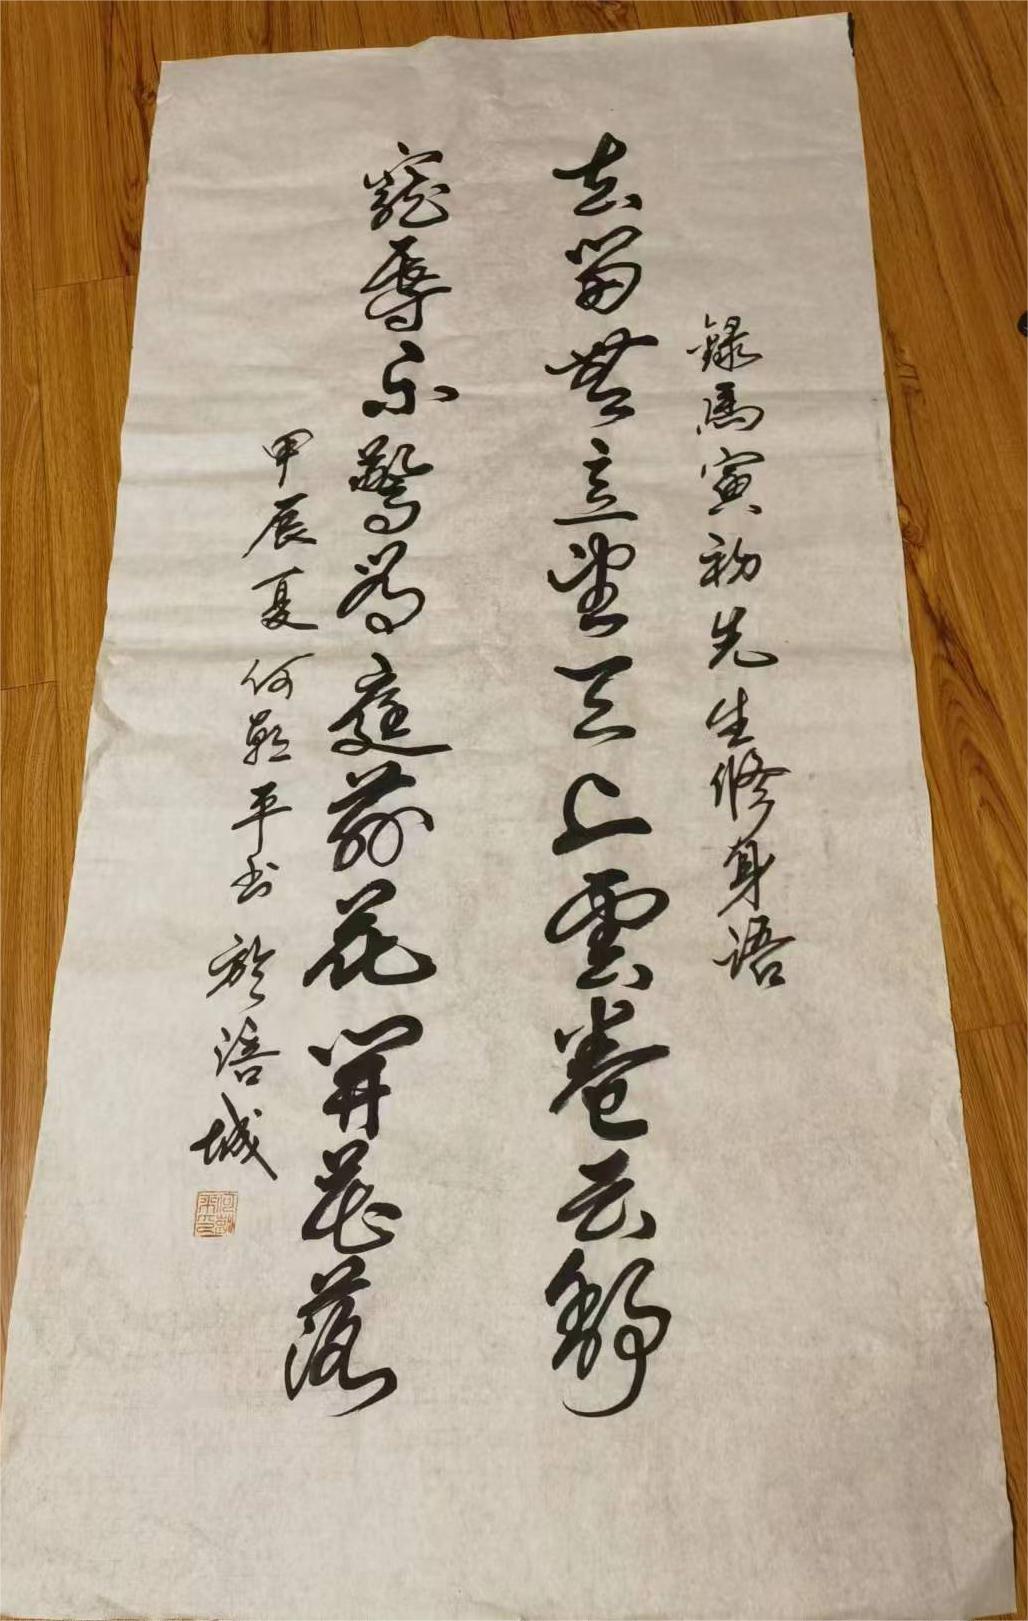 録馬寅初先生修身语
去留無意望天上雲卷云舒
寵辱不驚看庭前花開花落
甲辰夏何平书於涪城